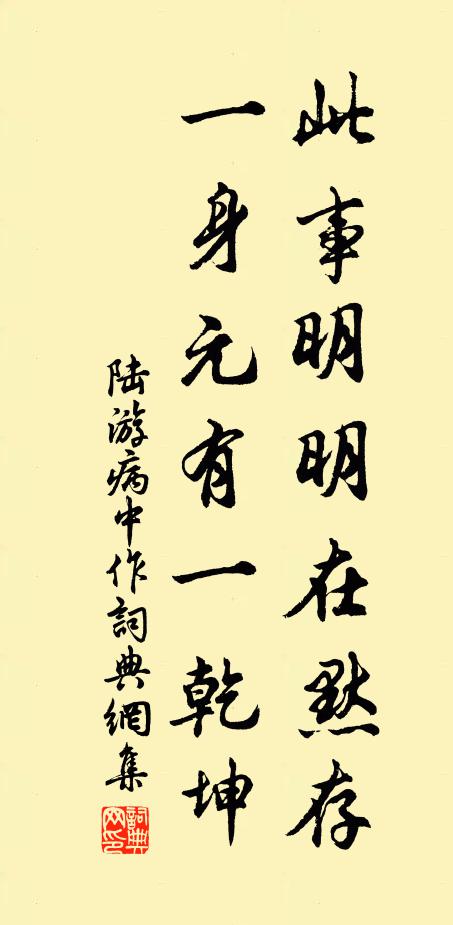 此事明明在默存
一身元有一乾坤
陆游病中作詞典網集
詞典網印